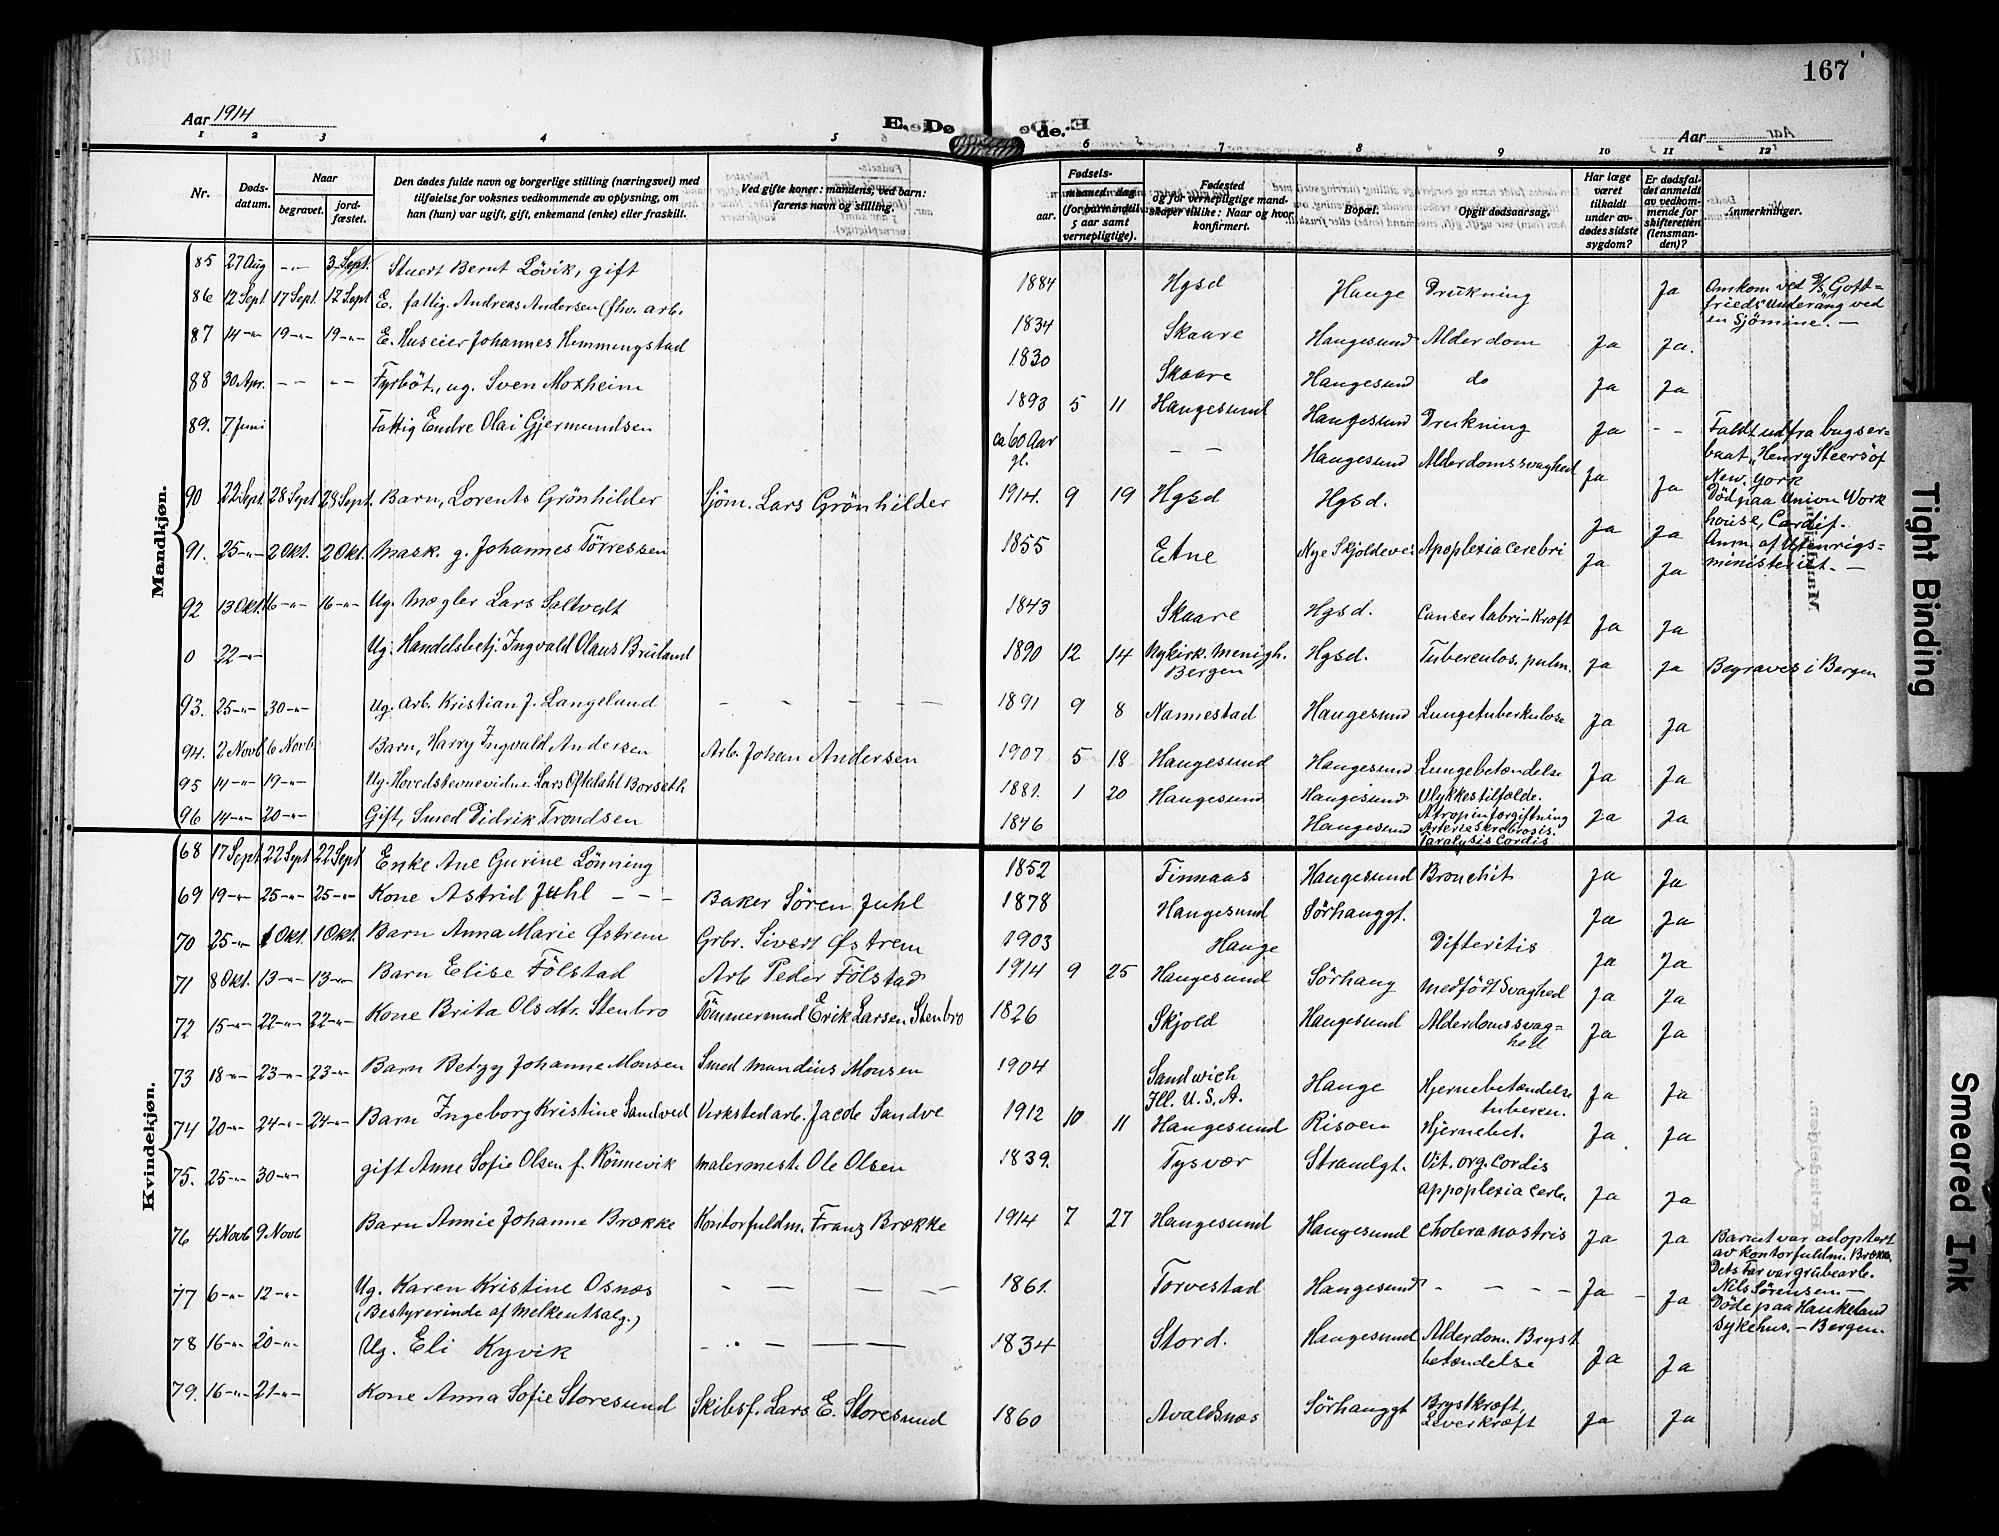 167
Aar 1914
E. Dø
de.
Aar
1 2 3 4 5 6 7 8 9 10 11 12
Nr.
Døds-
datum.
Naar
begravet.
jord-
fæstet.
Den dødes fulde navn og borgerlige stilling (næringsvei) med
tilføielse for voksnes vedkommende av oplysning, om
han (hun) var ugift, gift, enkemand (enke) eller fraskilt.
Ved gifte koner: mandens, ved barn:
farens navn og stilling.
Fødsels-
aar.
maaned. dag.
(for barn indtil
5 aar samt
vernepligtige).
Fødested
og for vernepligtige mand-
skaper tillike: Naar og hvor
konfirmert.
Bopæl.
Opgit dødsaarsag.
Har læge
været
tilkaldt
under av-
dødes sidste
sygdom?
Er dødsfal-
det anmeldt
av vedkom-
mende for
skifteretten
(lensman-
den)?
Anmerkninger.
Mandkjøn.
85 27 Aug -"- 3 Sept. Stuert Bernt Lövik, gift 1884 Hgsd Hauge Drukning Ja Omkom ved D/S Gott-
frieds Undergang ved
en Sjömine. —
86 12 Sept 17 Sept. 17 Sept E. fattig. Andreas Andersen (fhv. arb. 1834 Skaare Haugesund Alderdom Ja Ja.
87 14 -"- 19 -"- 19 -"- E. Huseier Johannes Hemmengstad 1830 Skaare Haugesund do Ja Ja
88 30 Apr. - - - - Fyrböt., ug. Sven Moxheim 1893 5 11 Haugesund Haugesund Drukning Ja - - Faldt ud fra bugser-
baat "Henry Steers" of
New. York
89. 7 Juni Fattig Endre Olai Gjermundsen ca 60 Aar
gl. - - Haugesund Alderdomssvaghed Ja Ja Död paa Union Work
house, Cardif.
Anm. af Utenrigs-
ministeriet. —
90 22 Sept. 28 Sept 28 Sept. Barn, Lorents Grönhilder Sjöm. Lars Grönhilder 1914. 9 19 Hgsd Hgsd. Ja Ja
91. 25 -"- 2 Okt. 2 Okt. Mask. g. Johannes Törressen 1855 Etne Nye Skjoldevei Apoplexia cerebri Ja Ja
92 13 Okt. 16 -"- 16 -"- Ug. Mægler Lars Saltvedt 1843 Skaare Hgsd. Canser labri-Kræft Ja Ja
0 22 -"- Ug. Handelsbetj. Ingvald Olaus Bruland 1890 12 14 Nykirk. Menigh.
Bergen Hgsd. Tuberculos. pulm. Ja Ja Begraves i Bergen
93. 25 -"- 30 -"- Ug. Arb. Kristian J. Langeland - - - - - 1891 9 8 Nannestad Haugesund Lungetuberkulose Ja Ja
94. 2 Novb 6 Novb. Barn, Harry Ingvald Andersen Arb. Johan Andersen 1907 5 18 Haugesund Haugesund Lungebetændelse Ja Ja
95 14 -"- 19 -"- Ug. Hovedstevnevidne Lars Oftedahl Borseth 1881. 1 20 Haugesund Haugesund Ulykkestilfælde.
Atropinforgiftning Ja Ja
96 14 -"- 20 -"- Gift, Smed Didrik Trondsen 1846 Haugesund
Paralysis Cordis
Kvindekjøn.
68 17 Sept 22 Sept 22 Sept Enke Ane Gurine Lönning 1852 Finnaas Haugesund Bronchit Ja Ja
69 19 -"- 25 -"- 25 -"- Kone Astrid Juhl - - - Baker Sören Juhl 1878 Haugesund Sörhauggt. Ja Ja
70 25 -"- 1 Okt. 1 Okt. Barn Anna Marie Østrem Grbr. Sivert Østrem 1903 Hauge Difteritis Ja Ja
71 8 Okt. 13 -"- 13 -"- Barn Elise Fölstad Arb Peder Fölstad 1914 9 25 Haugesund Sörhaug Medfödt Svaghed Ja Ja
72 15 -"- 22 -"- 22 -"- Kone Brita Olsdtr. Stenbro Tömmermand Erik Larsen Stenbro 1826 Skjold Haugesund Alderdomssvag-
hed Ja Ja
73 18 -"- 23 -"- 23 -"- Barn Betzy Johanne Monsen Smed Mandius Monsen 1904 Sandwich
Ill. U.S.A. Hauge Hjernebetændelse
tuberen. Ja Ja
74 20 -"- 24 -"- 24 -"- Barn Ingeborg Kristine Sandved Verkstedarb. Jacob Sandve 1912 10 11 Haugesund Risøen Hjernebet. Ja Ja
75. 25 -"- 30 -"- gift Anne Sofie Olsen f. Rönnevik Malermest. Ole Olsen 1839. Tysvær Strandgt. Vit. org. Cordis
Appoplexia cerb. Ja Ja
76 4 Novb 9. Novb Barn Annie Johanne Brække Kontorfuldm. Franz Brække 1914 7 27 Haugesund Haugesund Cholera nostris Ja Ja Barnet var adoptert
av Kontorfuldm. Brække.
Dets Far var grubearb.
Nils Sörensen —
77 6 -"- 12 -"- Ug. Karen Kristine Osnæs
(Bestyrerinde af Melkeutsalg.) - - - - 1861. Torvestad Haugesund - - - - Ja - Ja Döde paa Haukeland
Sykehus. - Bergen.
78 16 -"- 20 -"- Ug. Eli Kyvik 1834 Stord. Haugesund Alderdom. Bryst
betændelse Ja Ja
79. 16 -"- 21 -"- Kone Anna Sofie Storesund Skibsf. Lars E. Storesund 1860 Avaldsnæs Sörhauggt Brystkræft,
Leverkræft Ja Ja
Tight Binding
Smeared Ink